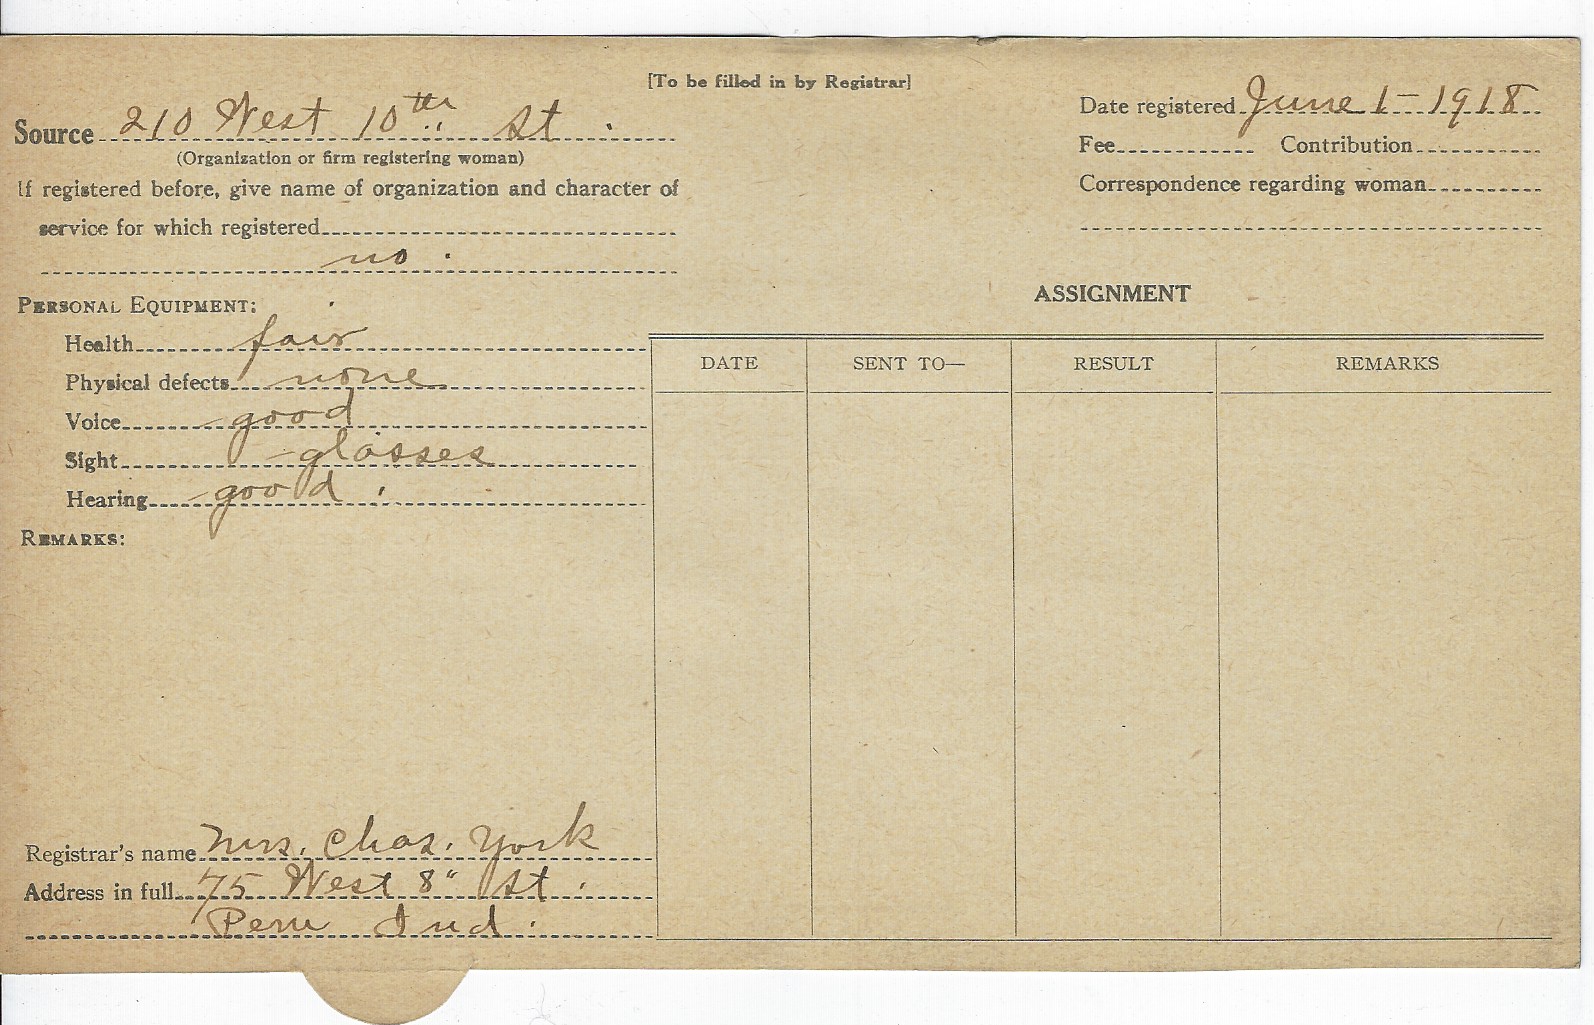 [To be filled in by Registrar]
Source 210 West 10th St.
(Organization or firm registering woman)
If registered before, give name of organization and character of
service for which registered
no.
Date registered June 1 - 1918
Fee Contribution
Correspondence regarding woman
PERSONAL EQUIPMENT:
Health fair
Physical defects none
Voice good
Sight glasses
Hearing good.
REMARKS:
ASSIGNMENT
DATE SENT TO— RESULT REMARKS
Registrar's name Mrs. Chas. York
Address in full 75 West 8" St.
Peru Ind.